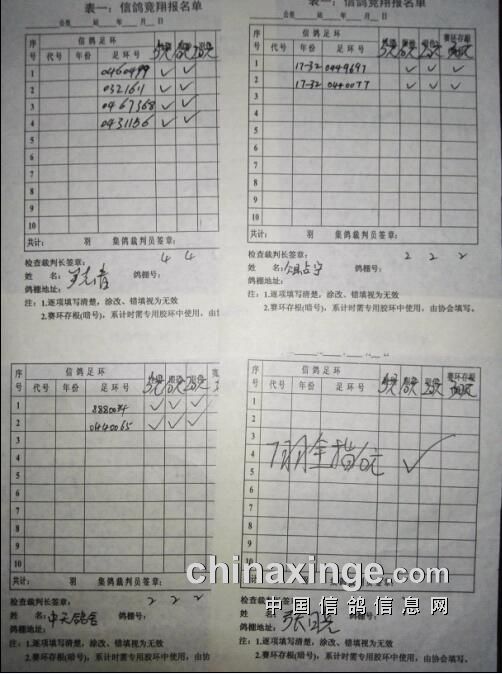 表一：信鸽竞翔报名单
会组 站 年 月 日
序号 信鸽足环
代号 年份 足环号
1 0460499 ✓ ✓
2 0321611 ✓ ✓
3 0467368 ✓ ✓
4 0431156 ✓ ✓
5
6
7
8
9
10
共计： 羽 集鸽裁判员签章：
检查裁判长签章： 4 4
姓 名： 鸽棚号：
鸽棚地址：
注：1.逐项填写清楚，涂改、错填视为无效
2.赛环存根(暗号)，累计时需专用胶环中使用，由
表一：信鸽竞翔报名单
会组 站 年 月 日
序号 信鸽足环 赛环存根
代号 年份 足环号
1 17-32 0449697 ✓ ✓ ✓
2 17-32 0440077 ✓ ✓ ✓
3
4
5
6
7
8
9
10
共计： 羽 集鸽裁判员签章：
检查裁判长签章： 2 2 2
姓 名： 鸽棚号：
鸽棚地址：
注：1.逐项填写清楚，涂改、错填视为无效
2.赛环存根(暗号)，累计时需专用胶环中使用，由协会填写。
序号 信鸽足环
代号 年份 足环号
1 8880034 ✓ ✓ ✓
2 0440065 ✓ ✓ ✓
3
4
5
6
7
8
9
10
共计： 羽 集鸽裁判员签章：
检查裁判长签章： 2 2 2
姓 名：中天鸽舍 鸽棚号：
鸽棚地址：
注：1.逐项填写清楚，涂改、错填视为无效
2.赛环存根(暗号)，累计时需专用胶环中使用，由协
序号 信鸽足环 赛环存根
代号 年份 足环号
1
2
3
4 7羽全指 ✓
5
6
7
8
9
10
共计：
检查裁判长签章：
姓 名： 鸽棚号：
鸽棚地址：
注：1.逐项填写清楚，涂改、错填视为无效
2.赛环存根(暗号)，累计时需专用胶环中使用，由协会填写。
chinaxinge.com
中国信鸽信息网